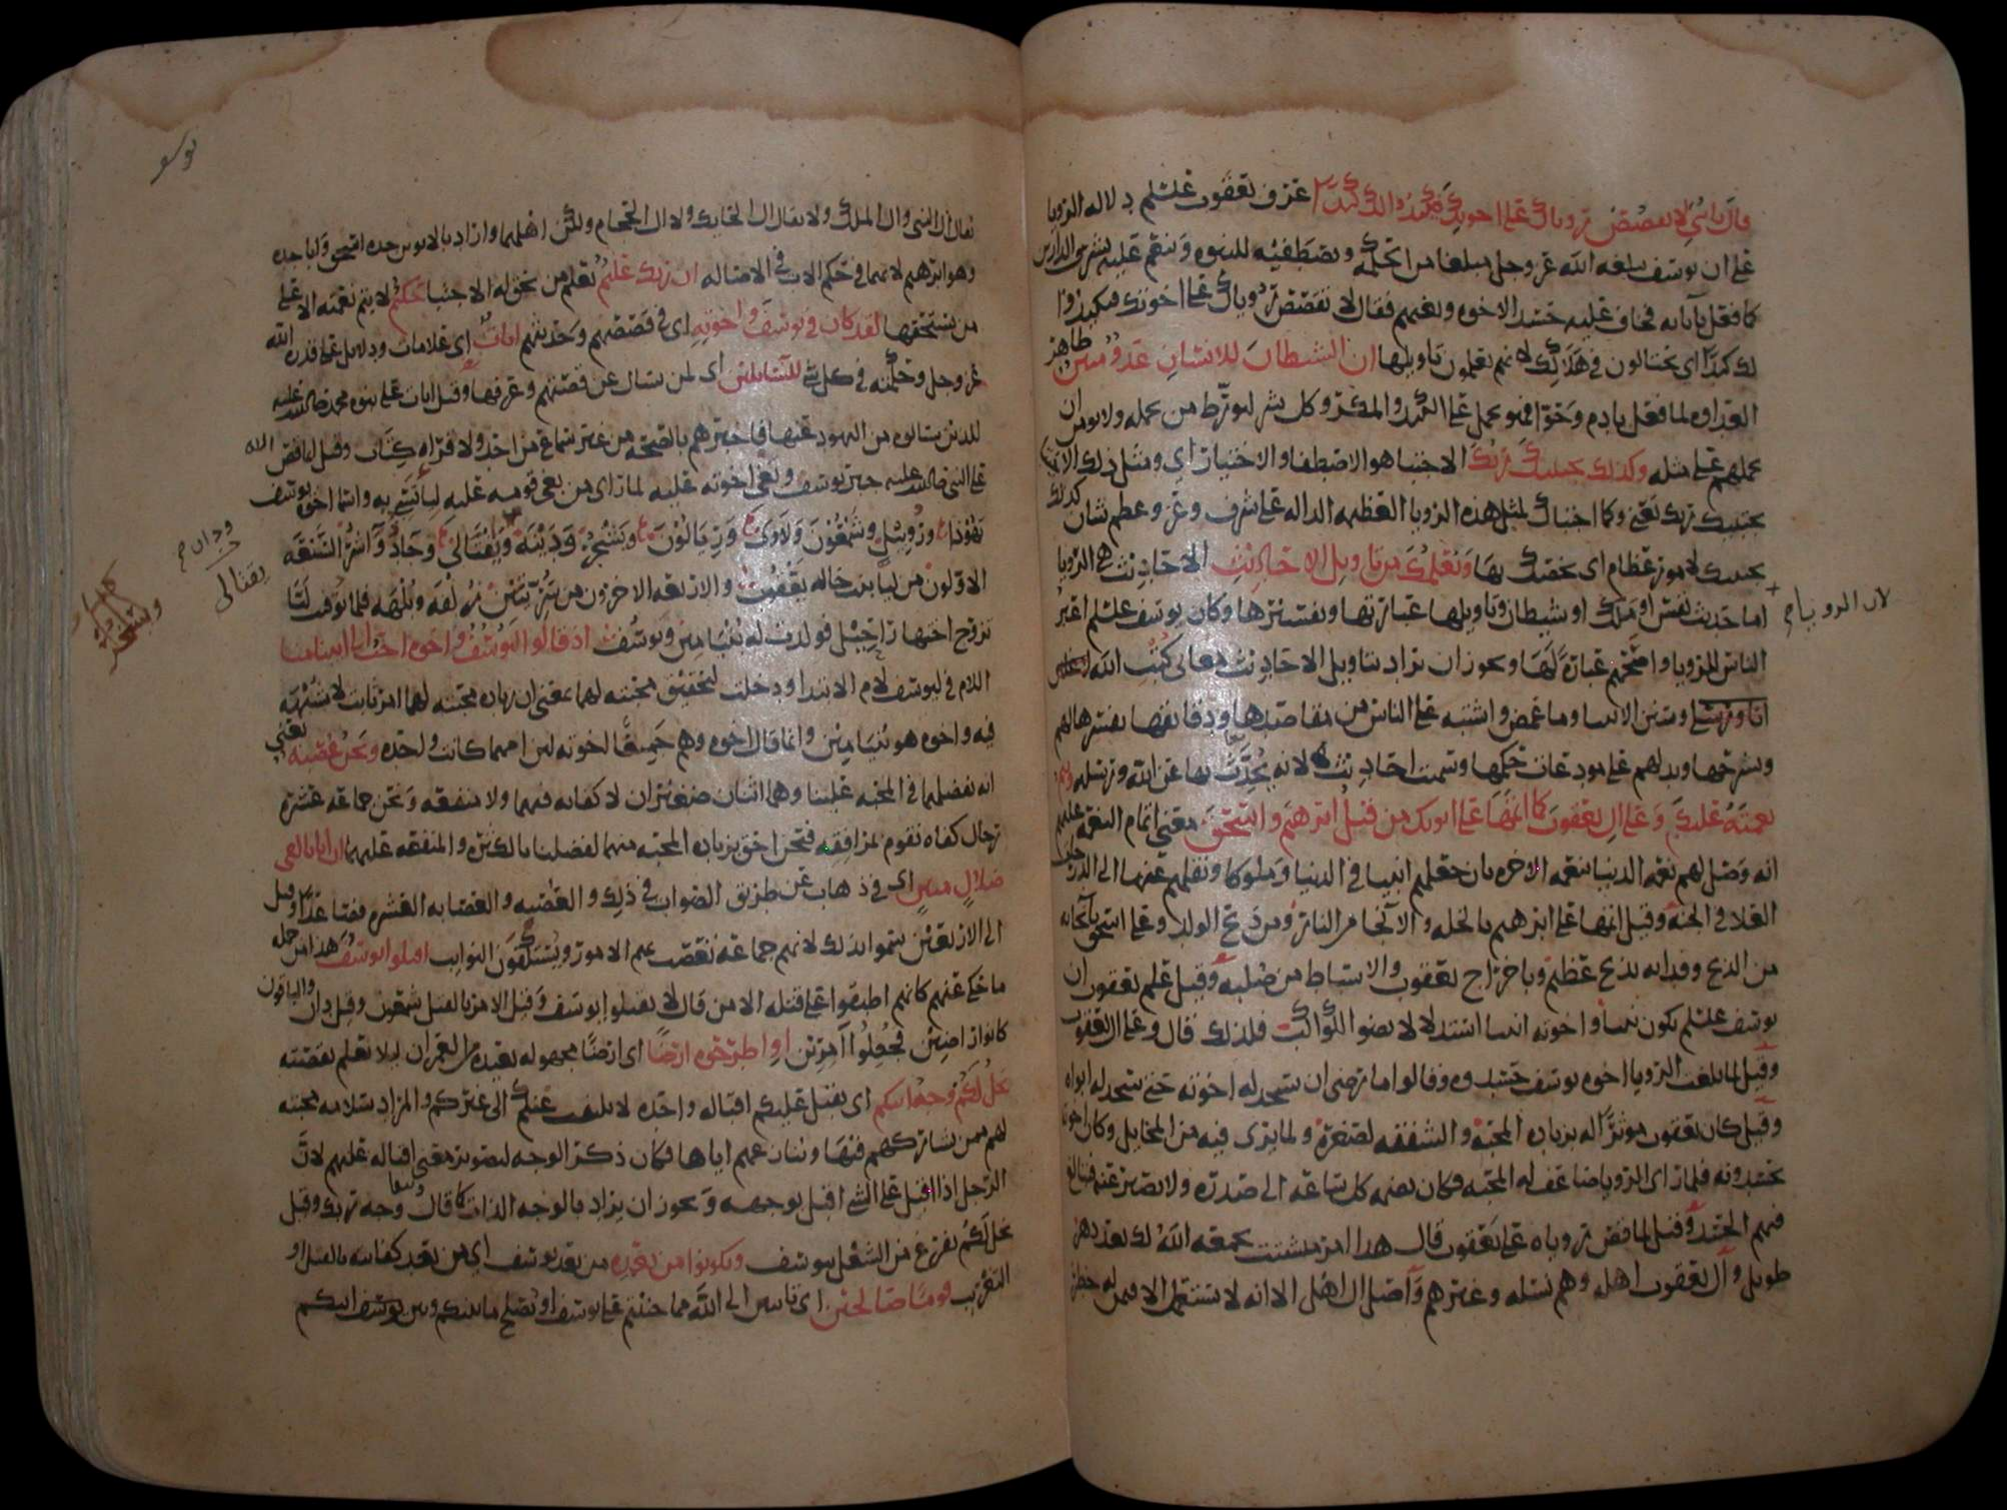 قال يا بني لا تقصص روياك على اخوتك فيكيدوا لك كيدا عرف يعقوب عليلم دلاله الرويا
على ان يوسف يبلغه الله عز وجل مبلغا من الحكمه ويصطفيه للنبوه وينعم عليه بشرف الدارين
كما فعل بآبايه فخاف عليه حسد الاخوه وبغيهم فقال لا تقصص روياك على اخوتك فيكيدوا
لك كيدا اى يحتالون في هلاكك لانهم يعلمون تاويلها ان الشيطان للانسان عدو مبين ظاهر
العداوه لما فعل بادم وحوا فهو يحمل على الكيد والمكر وكل شر ليورط من يحمله ولا يومن ان
يحملهم على مثله وكذلك يجتبيك ربك الاجتبا هو الاصطفا والاختيار اي ومثل ذلك الاجتبا
يجتبيك ربك يعني وكما اجتباك لمثل هذه الرويا العظيمه الداله على شرف وعز وعظم شان كذلك
يجتبيك لامور عظام اى يخصك بها ويعلمك من تاويل الاحاديث الاحاديث هى الرويا
اما حديث نفس او ملك او شيطان وتاويلها عبارتها وتفسيرها وكان يوسف عليلم اعبر
لان الرويا
الناس للرويا واصحهم عبارة لها ويجوز ان يراد بتاويل الاحاديث معانى كتب الله
وسنن الانبيا وما غمض واشتبه على الناس من مقاصدها ودقايقها يفسرها لهم
ويشرحها ويدلهم على مودعات حكمها وسميت احاديث لانه يحدث بها عن الله ورسله ويتم
نعمته عليك وعلى ال يعقوب كما اتمها على ابويك من قبل ابرهيم واسحق معنى اتمام النعمه عليهم
انه وصل لهم نعمه الدنيا بنعمه الاخره بان جعلهم انبيا في الدنيا وملوكا ونقلهم عنها الى الدرجات
العلا في الجنه وقيل اتمها على ابرهيم بالخله والانجا من النار ومن ذبح الولد وعلى اسحق بانجائه
من الذبح وفدائه بذبح عظيم وباخراج يعقوب والاسباط من صلبه وقيل علم يعقوب ان
يوسف عليلم يكون نبيا واخوته انبيا استدلالا بضوا الكواكب فلذلك قال وعلى ال يعقوب
وقيل لما بلغت الرويا اخوه يوسف حسدوه وقالوا ما رضى ان سجد له اخوته حتى سجد له ابواه
وقيل كان يعقوب موثرا له بزياده المحبة والشفقه لصغره ولما يرى فيه من المخايل وكان اخوته
يحسدونه فلما راى الرويا ضاعف له المحبه فكان يضمه كل ساعه الى صدره ولا يصبر عنه فتبالغ
فيهم الحسد وقيل لما قص روياه على يعقوب قال هذا امر مشتت يجمعه الله لك بعد دهر
طويل وآل يعقوب اهله وهم نسله وغيرهم واصل ال اهل الا انه لا يستعمل الا فيمن له خطر
يوسف
يقال ال النبى وال الملك ولا يقال ال الحايك ولا ال الحجام ولكن اهلهما واراد بالابوين جده اسحق وابا جده
وهو ابرهيم لانهما في حكم الاب في الاصاله ان ربك عليم يعلم من يحق له الاجتبا حكيم لا يتم نعمته الا على
من يستحقها لقد كان في يوسف واخوته اى في قصصهم وحديثهم ايات اى علامات ودلايل على قدره الله
عز وجل وحكمته في كل شى للسايلين اى لمن سال عن قصتهم وعرفها وقيل ايات على نبوه محمد صلى الله عليه
للذين سالوه من اليهود عنها فاخبرهم بالصحه من غير سماع من احد ولا قراه كتاب وقيل انما قص الله
على النبى صلى الله عليه خبر يوسف وبغى اخوته عليه لما راى من بغى قومه عليه ليتاسى به واسما اخوه يوسف
يهوذا وروبيل وشمعون ولاوى وزيالون ويشجر ودينه ويفتالى وجاد وآشر السبعه
ودان
يفتالى
ويشجر
الاولون من ليا بنت خاله يعقوب والاربعه الاخرون من سريتين زلفه وبلهه فلما توفيت ليا
تزوج اختها راحيل فولدت له بنيامين ويوسف اذ قالوا ليوسف واخوه احب الى ابينا منا
اللام في ليوسف لام الابتدا ودخلت لتحقيق محبته لهما يعنى ان زياده محبته لهما امر ثابت لا شبهه
فيه واخوه هو بنيامين وانما قال اخوه وهم جميعا اخوته لان امهما كانت واحده ونحن عصبه يعني
انه يفضلهما في المحبه علينا وهما اثنان صغيران لا كفايه فيهما ولا منفعه ونحن جماعه عشره
رجال كفاه نقوم بمرافقه فنحن احق بزياده المحبه منهما لفضلنا بالكثره والمنفعه عليهما ان ابانا لفى
ضلال مبين اى في ذهاب عن طريق الصواب في ذلك والعصبه والعصابه العشره فصاعدا وقيل
الى الاربعين سموا بذلك لانهم جماعه تعصب بهم الامور ويستكفون النوايب اقتلوا يوسف هذا من جمله
ما حكى عنهم كانهم اطبقوا على قتله الا من قال لا تقتلوا يوسف وقيل الامر بالقتل شمعون وقيل دان والباقون
كانوا راضين فجعلوا آمرين او اطرحوه ارضا اى ارضا مجهوله بعيده من العمران ليلا يعلم بقصته
يخل لكم وجه ابيكم اى يقبل عليكم اقباله واحده لا يلتفت عنكم الى غيركم والمراد سلامه محبته
لهم ممن يشاركهم فيها وينازعهم اياها فكان ذكر الوجه لتصوير معنى اقباله عليهم لان
الرجل اذا اقبل على الشى اقبل بوجهه ويجوز ان يراد بالوجه الذات كما قال ويبقا وجه ربك وقيل
يخل لكم يفرغ من الشغل بيوسف وتكونوا من بعده من بعد يوسف اى من بعد كفايته بالقتل او
التغريب قوما صالحين اى تايبين الى الله مما جنيتم على يوسف او يصلح ما بينكم وبين يوسف ابيكم